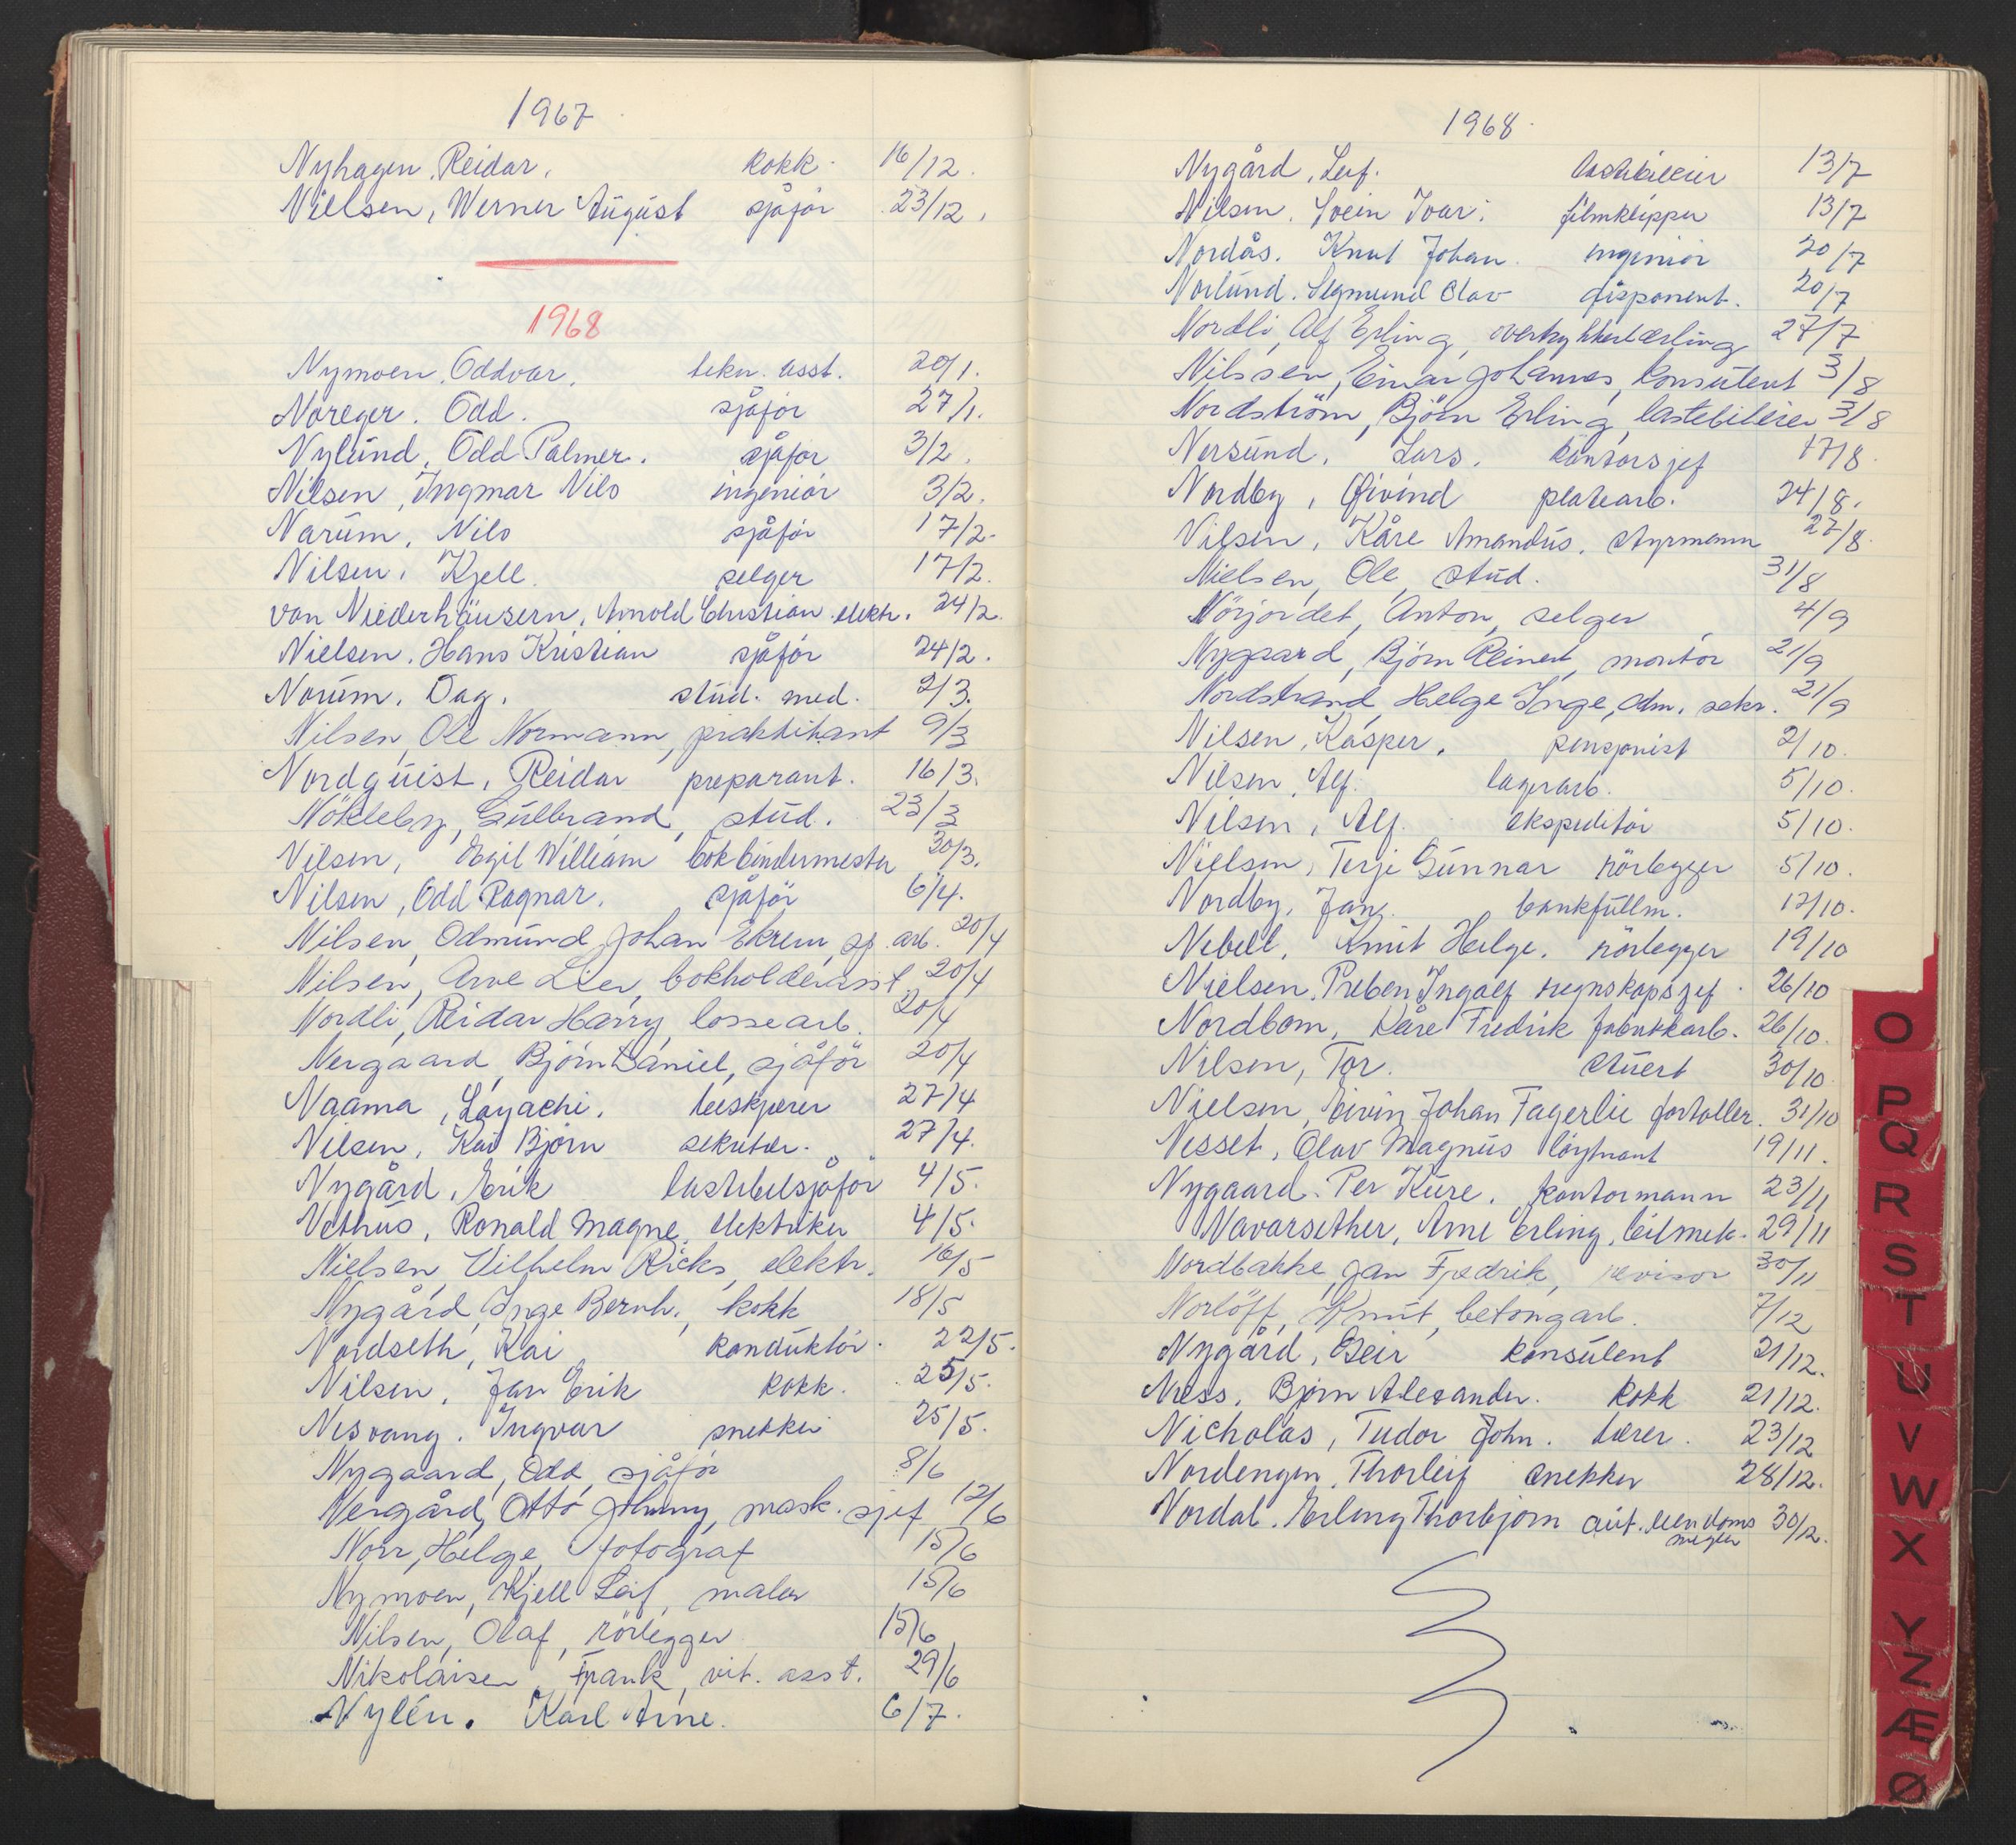 1967
Nyhagen, Reidar, kokk 16/12.
Nielsen, Werner August sjåfør 23/12.
1968
Nymoen, Oddvar, tekn. asst. 20/1.
Noreger. Odd. sjåfør 27/1.
Nylund, Odd Palmer. sjåfør 3/2.
Nilsen, Ingmar Nils ingeniør 3/2.
Narum, Nils sjåfør 17/2.
Nilsen, Kjell. selger 17/2.
von Niederhäusern, Arnold Christian elektr. 24/2.
Nielsen, Hans Kristian sjåfør 24/2.
Norum, Dag. stud. med. 2/3.
Nilsen, Ole Normann, praktikant 9/3
Nordquist, Reidar preparant. 16/3.
Nökleby, Gulbrand, stud. 23/3
Nilsen, Egil William bokbindermester 30/3.
Nilsen, Odd Ragnar. sjåfør 6/4.
Nilsen, Odmund Johan Ekrem, sp. arb. 20/4
Nilsen, Arve Lier, bokholderasst 20/4
Nordli, Reidar Harry, lossearb. 20/4
Nergaard, Bjørn Daniel, sjåfør 20/4
Naama, Layachi. 27/4
Nilsen, Kai Bjørn sekretær. 27/4.
Nygård, Erik lastebilsjåfør 4/5.
Nethus, Ronald Magne, elektriker 4/5.
Nielsen, Vilhelm Ricks, elektr. 16/5
Nygård, Inge Bernh., kokk 18/5
Nordseth, Kai konduktør. 22/5.
Nilsen, Jan Erik kokk. 25/5.
Nesvang. Ingvar snekker 25/5.
Nygaard, Odd, sjåfør 8/6
Nergård, Otto Johnny, mask. sjef 12/6
Norr, Helge, fotograf 15/6
Nymoen, Kjell Leif, maler 15/6
Nilsen, Olaf, rörlegger 15/6
Nikolaisen, Frank, vit. asst. 29/6
Nylén. Karl Arne. 6/7.
1968.
Nygård, Leif. lastebileier 13/7
Nilsen, Svein Ivar. filmklipper 13/7
Nordås. Knut Johan. ingeniør 20/7
Norlund. Segmund Olav disponent. 20/7
Nordli, Alf Erling, 27/7
Nilssen, Einar Johannes, konsulent 3/8
Nordström, Bjørn Erling, lastebileier 3/8
Nersund, Lars. kontorsjef 17/8.
Nordby, Øivind platearb. 24/8.
Nilsen, Kåre Amandus. styrmann 27/8.
Nielsen, Ole, stud. 31/8
Nörjordet, Anton, selger 4/9
Nygaard, Bjørn Reinert, montør 21/9
Nordstrand, Helge Inge, adm. sekr. 21/9
Nilsen, Kasper. pensjonist 2/10.
Nilsen, Alf. lagerarb. 5/10.
Nilsen, Alf. ekspeditör 5/10.
Nielsen, Terje Gunnar rörlegger 5/10.
Nordby, Jan. bankfullm. 12/10.
Nebell, Knut Helge. rørlegger 19/10
Nielsen, Preben Ingolf regnskapssjef. 26/10
Nordbom, Kåre Fredrik fabrikkarb. 26/10.
Nilsen, Tor. stuert 30/10
Nielsen, Eivin Johan Fagerlie fortoller. 31/10
Nesset, Olav Magnus löytnant 19/11.
Nygaard. Per Kure. kontormann 23/11
Navarsether, Arne Erling, bilmek. 29/11
Nordbakke, Jan Fredrik, revisor 30/11
Norlöff, Knut, betongarb. 7/12
Nygård, Geir konsulent 21/12.
Næss, Bjørn Alexander. kokk 21/12.
Nicholas, Tudor John. lærer. 23/12
Nordengen, Thorleif snekker 28/12.
Nordal. Erling Thorbjørn aut. eiendoms 30/12.
megler
O
P
Q
R
S
T
U
V
W
X
Y
Z
Æ
Ø